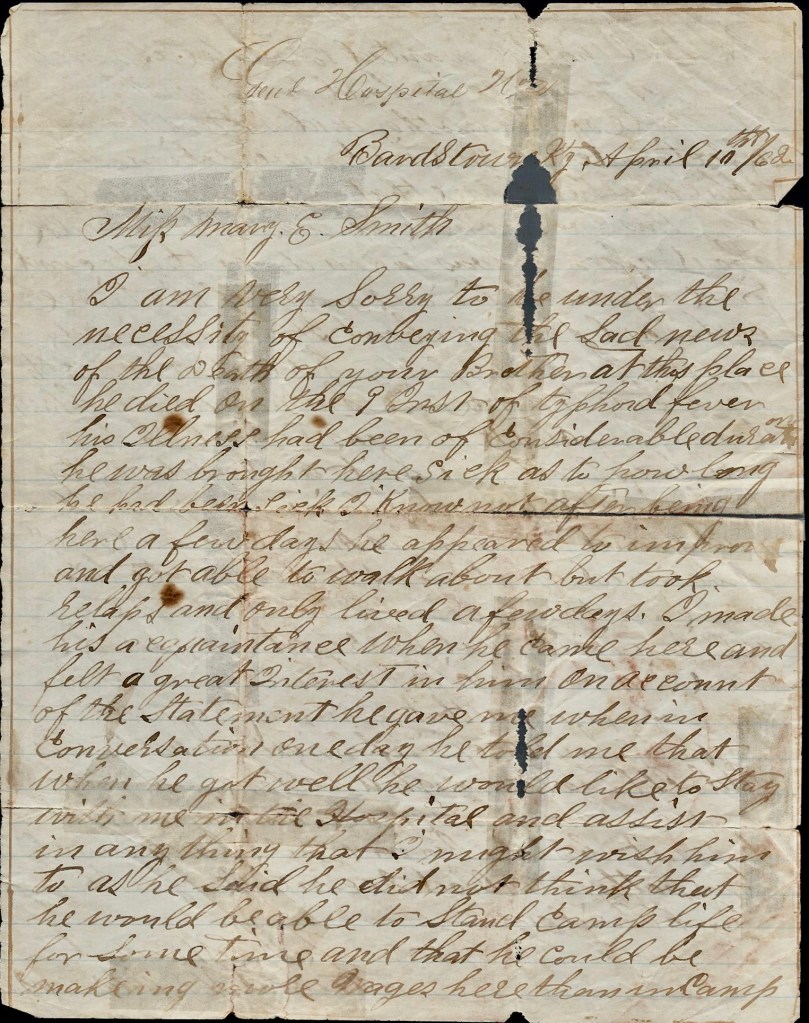 Genl Hospital No
Bardstown Ky. April 10th/62
Miss Mary. E. Smith
I am very Sorry to be under the
necessity of Conveying the Sad news
of the Death of your Brother at this place
he died on the 9 Inst of typhord fever
his Illness had been of Considerable duration
he was brought here Sick as to how long
he had been Sick I Know not after being
here a few days he appeared to improv
and got able to walk about but took
relaps and only lived a few days. I made
his acquaintance when he Came here and
felt a great Interest in him on account
of the Statement he gave me when in
Conversation one day he told me that
when he got well he would like to Stay
with me in the Hospital and assist
in any thing that I might wish him
to as he Said he did not think that
he would be able to Stand Camp life
for Some time and that he could be
makeing more Wages here than in Camp